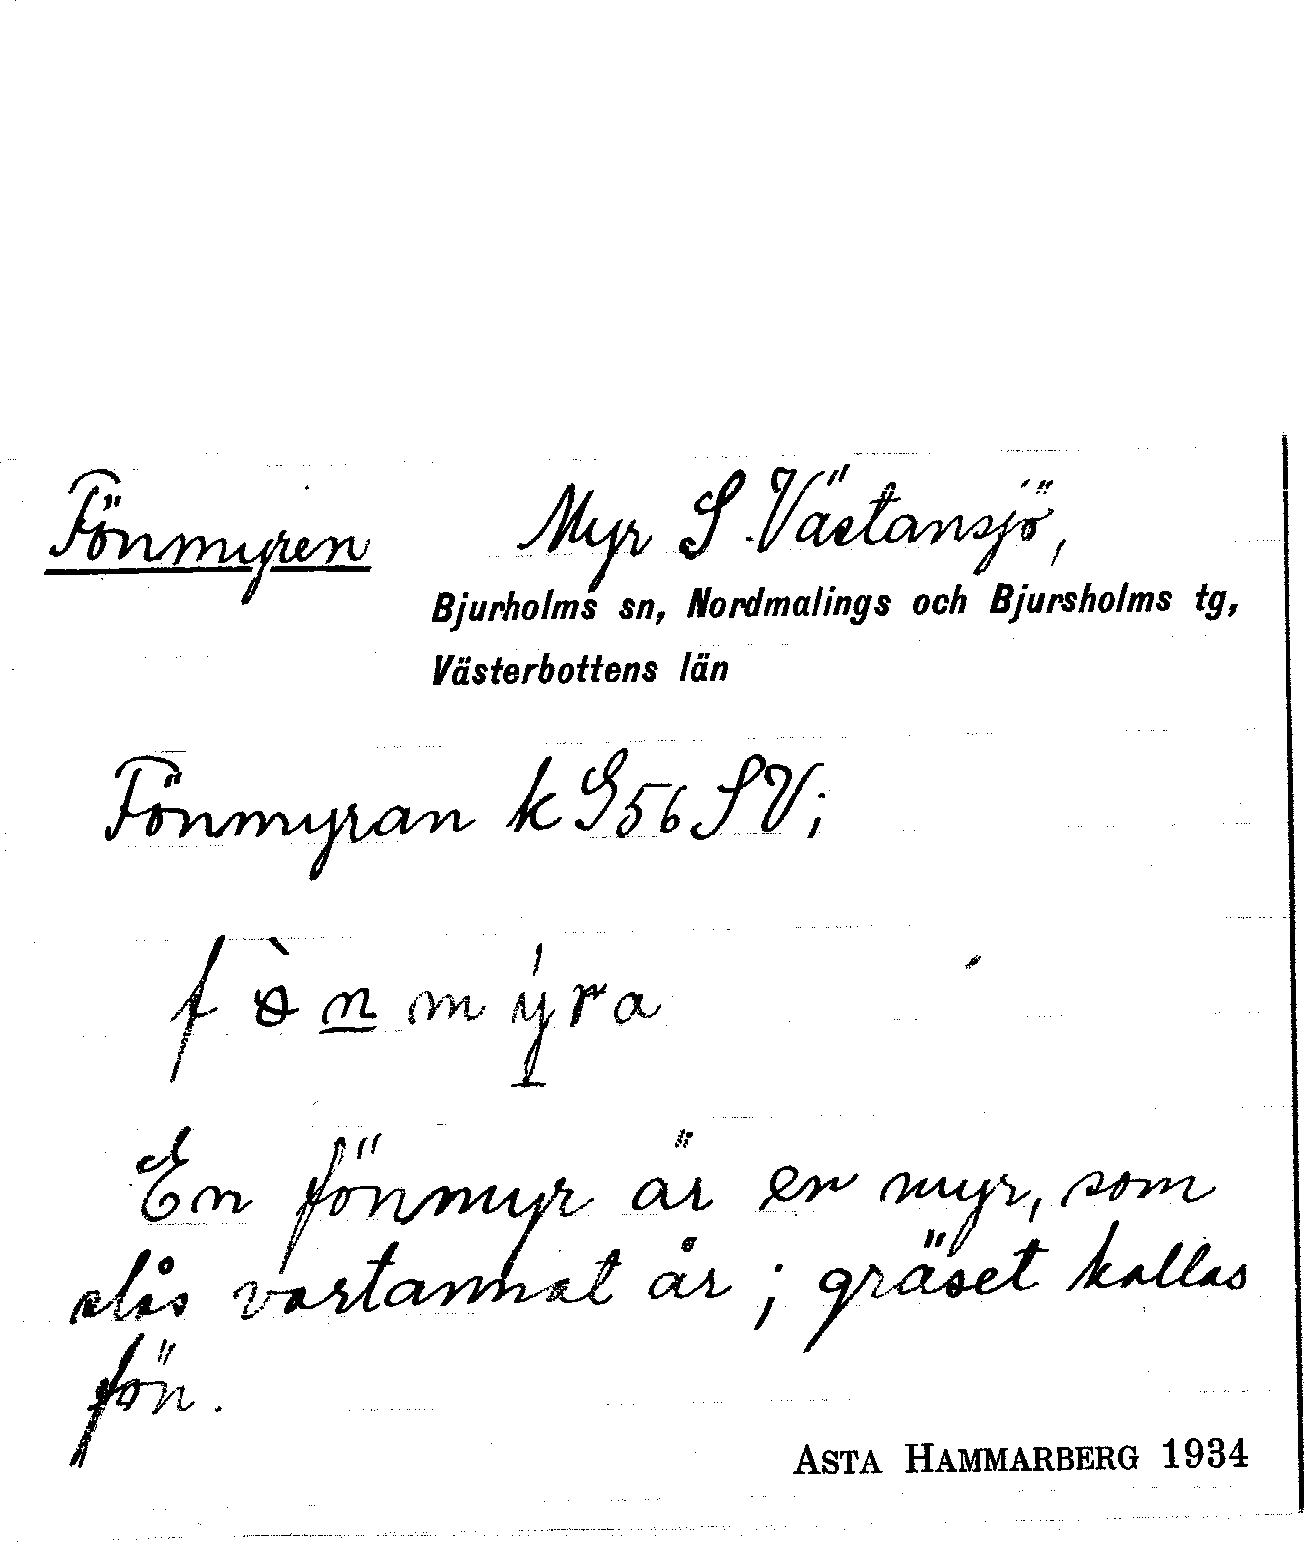 Fönmyren Myr S Västansjö,
Bjurholms sn, Nordmalings och Bjursholms tg,
Västerbottens län
Fönmyran k G56 SV;
f ɵ̀ n m ý r a
En fönmyr är en myr, som
slås vartannat år; gräset kallas
fön.
ASTA HAMMARBERG 1934